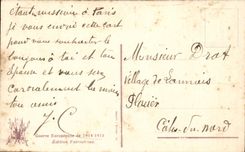 étant messieur à Paris
je vous envoi cette carte
pour vous souhaiter le
toujours à toi et ton
épouse et vous ser
cordialement la main
ton ami
J. C
Guerre Européenne de 1914 1915
Édition Patriotique
Monsieur Drot
Village de
Plouër
Côtes-du-Nord